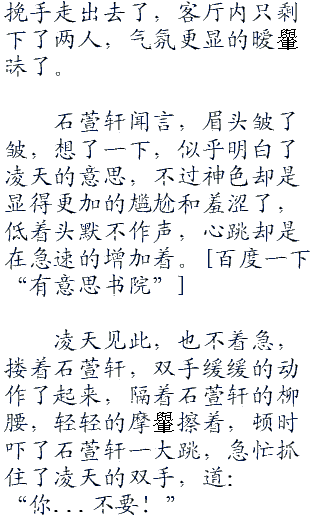 挽手走出去了，客厅内只剩
下了两人，气氛更显的暧
昧了。
石萱轩闻言，眉头皱了
皱，想了一下，似乎明白了
凌天的意思，不过神色却是
显得更加的尴尬和羞涩了，
低着头默不作声，心跳却是
在急速的增加着。[百度一下
“有意思书院”]
凌天见此，也不着急，
搂着石萱轩，双手缓缓的动
作了起来，隔着石萱轩的柳
腰，轻轻的摩擦着，顿时
吓了石萱轩一大跳，急忙抓
住了凌天的双手，道：
“你...不要！”